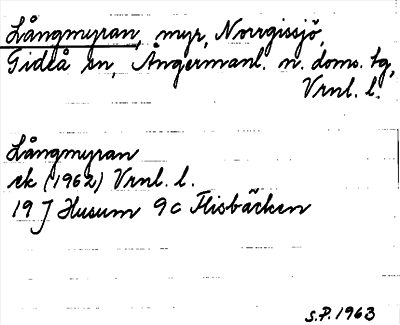 Långmyran, myr, Norrgissjö,
Gideå sn, Ångermanl. n. doms. tg,
Vrnl. l.
Långmyran
ek (1962) Vrnl. l.
19 J Husum 9c Flisbäcken
S.P. 1963